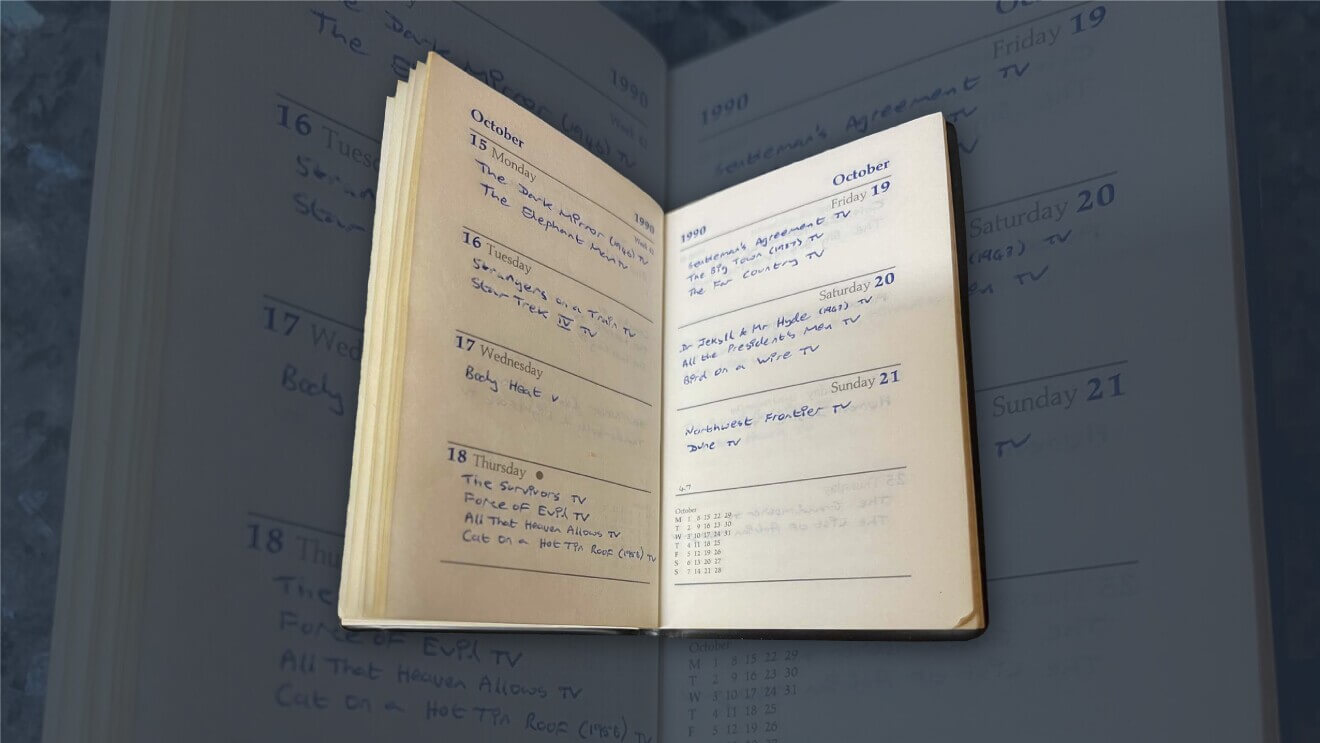 October
15 Monday
1990
Week 42
The Dark Mirror (1946) TV
The Elephant Man TV
16 Tuesday
Strangers on a Train TV
Star Trek IV TV
17 Wednesday
Body Heat v
18 Thursday
The Survivors TV
Force of Evil TV
All That Heaven Allows TV
Cat on a Hot Tin Roof (1958) TV
October
1990
Friday 19
Gentleman's Agreement TV
The Big Town (1987) TV
The Far Country TV
Saturday 20
Dr Jekyll & Mr Hyde
All the President's Men TV
Bird on a Wire TV
Sunday 21
Northwest Frontier TV
Dune TV
47
October
M 1 8 15 22 29
T 2 9 16 23 30
W 3 10 17 24 31
T 4 11 18 25
F 5 12 19 26
S 6 13 20 27
S 7 14 21 28